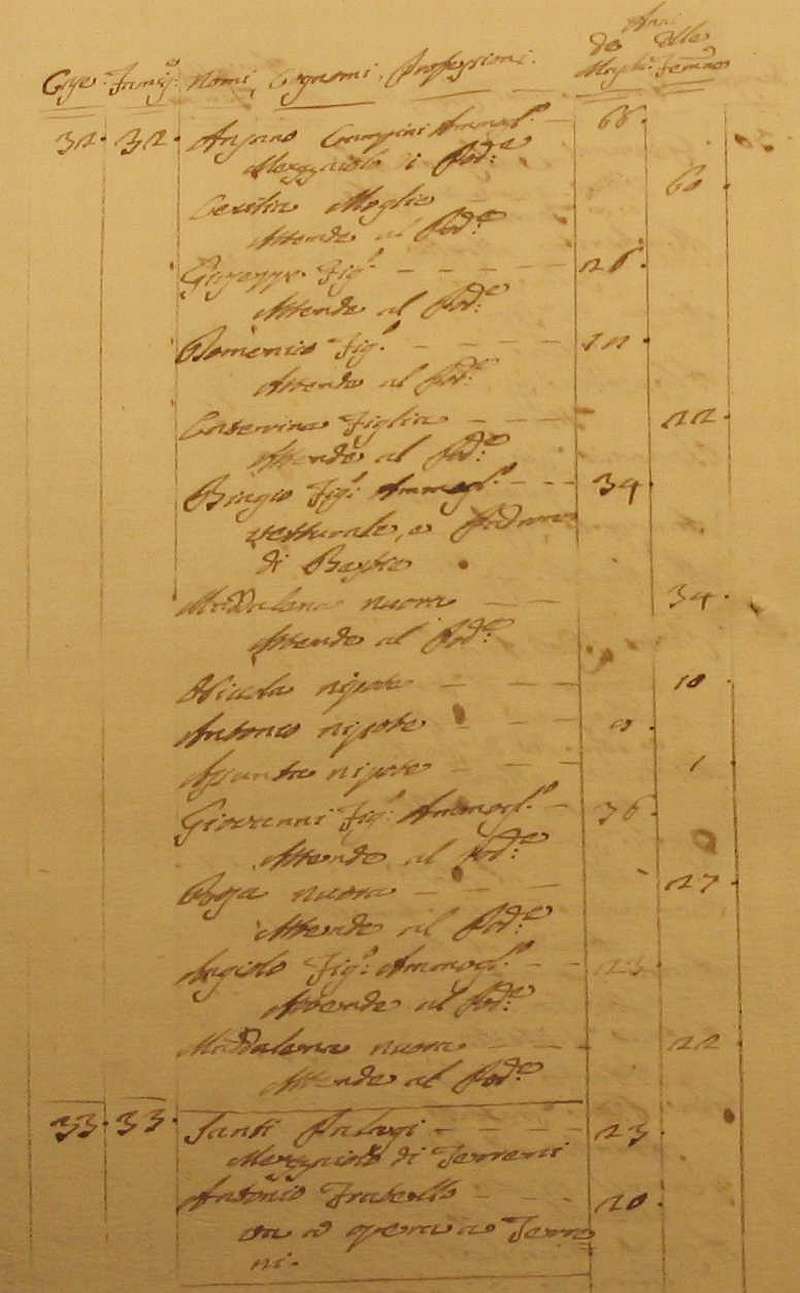 Anni
de delle
Case: Famig: Nomi, Cognomi, Professioni. Maschi: Femine
32. 32. Ammogl.º 66.
Mezzaiolo Pod:e
Cecilia Moglie 60
Attende al Pod:e
Giuseppe Fig.º 26.
Attende al Pod:e
Domenico Fig.º
Attende al Pod:e
Caterina Figlia 22.
Attende al Pod:e
Biagio Fig.º Ammogl.º 34
Vetturale, e
di Bestie
Maddalena nuora 34.
Attende al Pod:e
nipote 10
Antonio nipote
Assunta nipote 1
Giovanni Fig.º Ammogl.º 36
Attende al Pod:e
Rosa nuora 27
Attende al Pod:e
Angiolo Fig.º Ammogl.º 23
Attende al Pod:e
Maddalena nuora 22
Attende al Pod:e
33. 33. Santi 23
Mezzaiolo di Terreni
Antonio Fratello 20
va a opera a Terre
ni.